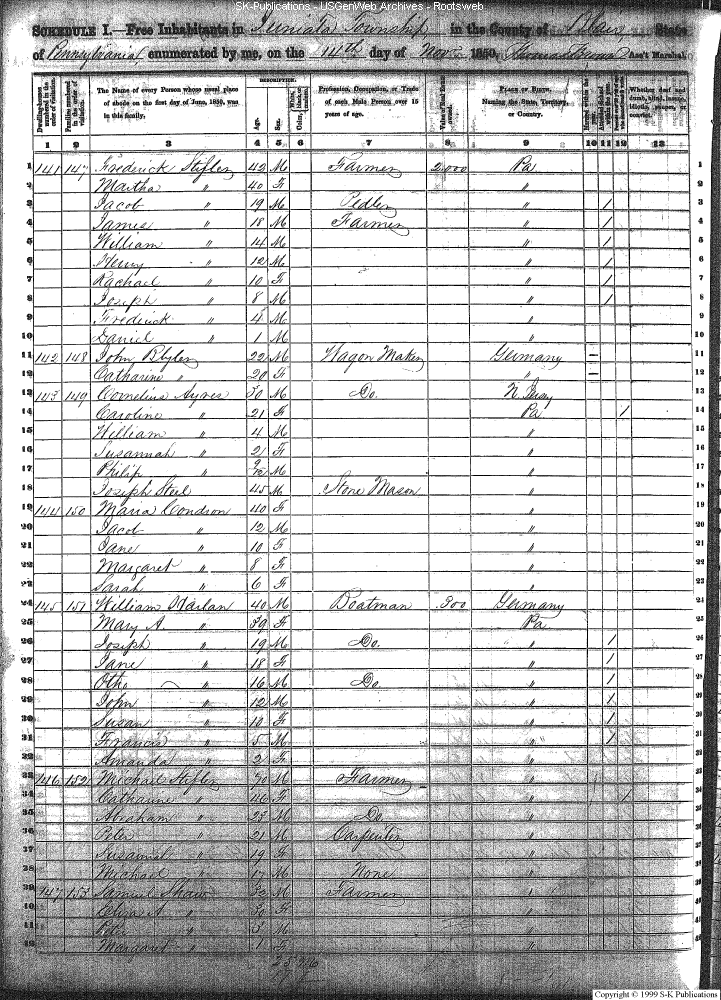 SK-Publications - USGenWeb Archives - Rootsweb
SCHEDULE I.—Free Inhabitants in Juniata Township in the County of Blair State
of Pennsylvania enumerated by me, on the 14th day of Nov. 1850. Ass't Marshal.
Dwelling-houses numbered in the order of visitation. Families numbered in the order of visitation. The Name of every Person whose usual place of abode on the first day of June, 1850, was in this family. DESCRIPTION. Age. Sex. Profession, Occupation, or Trade of each Male Person over 15 years of age. Value of Real Estate owned. PLACE OF BIRTH. Naming the State, Territory, or Country. Married within the year. Whether deaf and dumb, blind, insane, idiotic, pauper, or convict.
1 2 3 4 5 6 7 8 9 10 11 12 13
1 141 147 Frederick Stifler 42 M Farmer 2,000 Pa 1
2 Martha " 40 F " 2
3 Jacob " 19 M Pedler " 1 3
4 James " 18 M Farmer " 1 4
5 William " 14 M " 1 5
6 Henry " 12 M " 1 6
7 Rachael " 10 F " 1 7
8 Joseph " 8 M " 1 8
9 Frederick " 4 M " 9
10 Daniel " 1 M " 10
11 142 148 John 22 M Wagon Maker Germany – 11
12 Catharine " 20 F " – 12
13 143 149 Cornelius Ayres 30 M Do. N. Jersey 13
14 Caroline " 21 F Pa 1 14
15 William " 4 M " 15
16 Susannah " 2 F " 16
17 Philip " M " 17
18 Joseph Steel 45 M Stone Mason " 18
19 144 150 Maria Condron 40 F " 19
20 Jacob " 12 M " 20
21 Jane " 10 F " 21
22 Margaret " 8 F " 22
23 Sarah " 6 F " 23
24 145 151 William Harlan 40 M Boatman 300 Germany 24
25 Mary A. " 39 F Pa 25
26 Joseph " 19 M Do. " 1 26
27 Jane " 18 F " 1 27
28 Otho " 16 M Do. " 1 28
29 John " 12 M " 1 29
30 Susan " 10 F " 1 30
31 Francis " 5 M " 1 31
32 Amanda " 2 F " 32
33 146 152 Michael Stifler 50 M Farmer " 33
34 Catharine " 46 F " 1 34
35 Abraham " 23 M Do. " 35
36 Peter " 21 M Carpenter " 36
37 " 19 F " 37
38 Michael " 17 M None " 38
39 147 153 Samuel Shaw 32 M Farmer " 39
40 " 30 F " 40
41 " 3 M " 41
42 Margaret " 1 F " 42
Copyright © 1999 S-K Publications